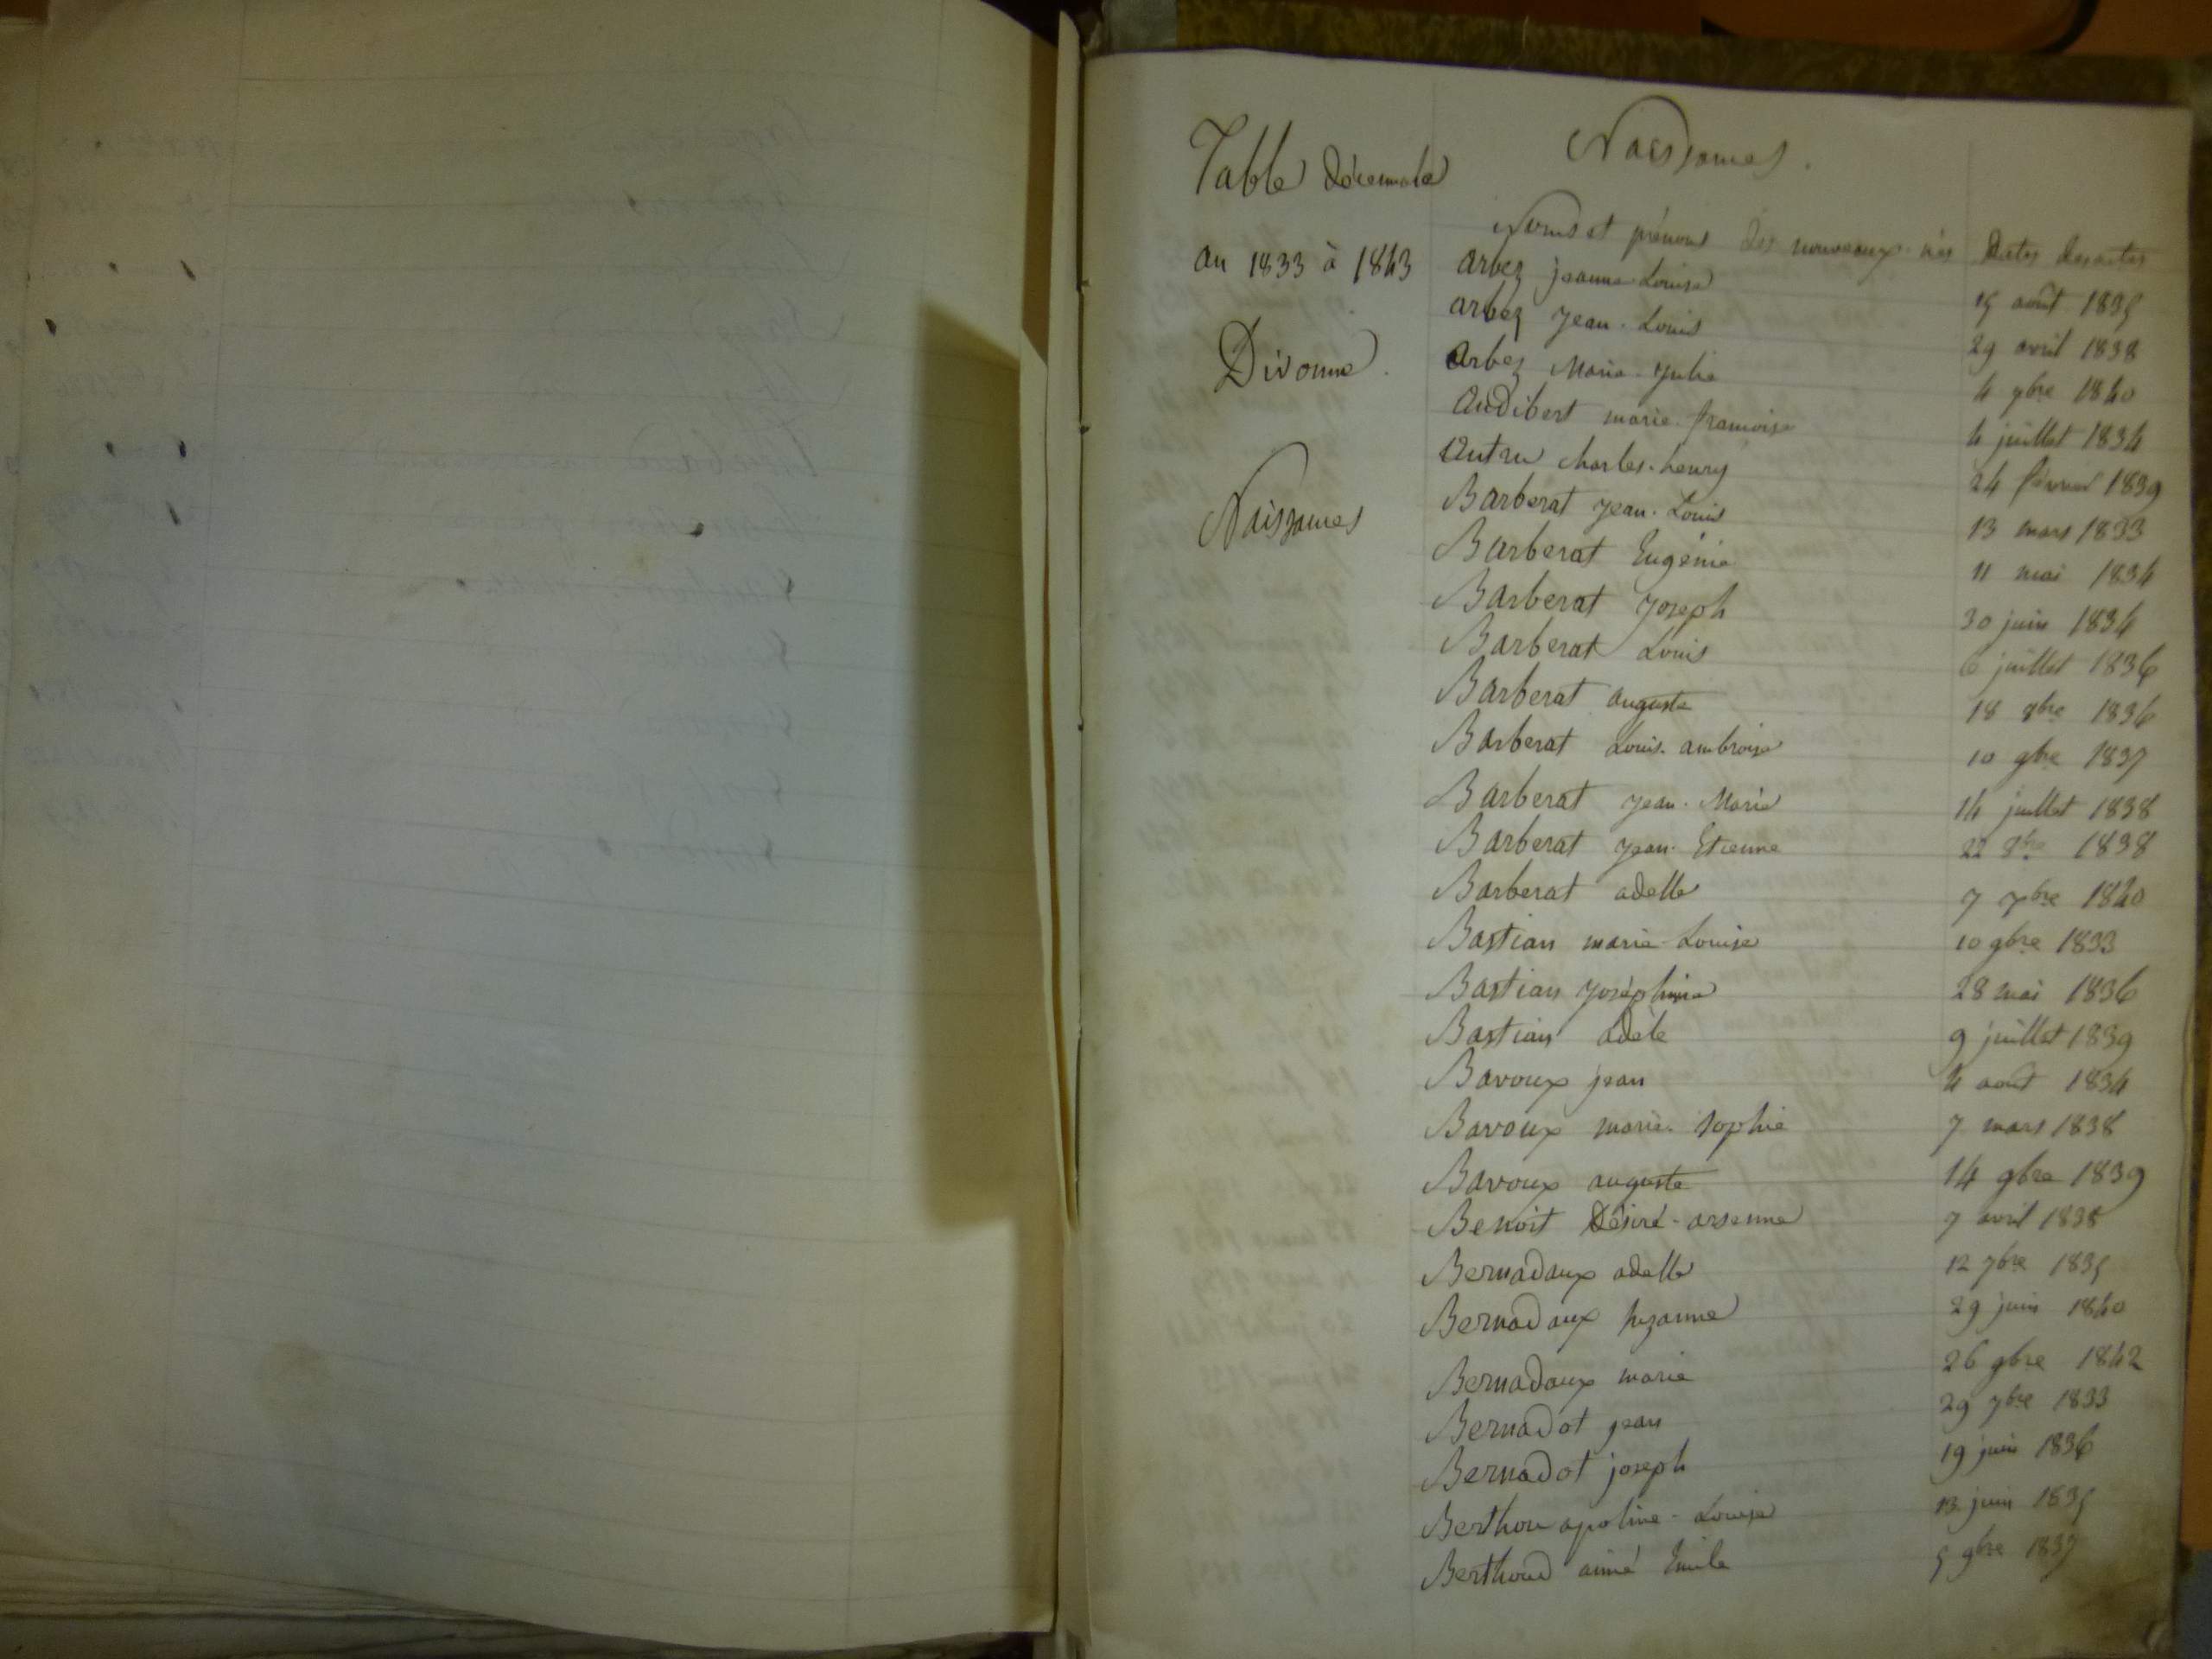 Table décennale
an 1833 à 1843
Divonne
Naissances
Naissances.
Noms et prénoms des nouveaux-nés Dates des actes
arbez jeanne-Louise 15 août 1835
arbez jean-Louis 29 avril 1838
arbez Marie-Julie 4 1840
audibert marie-françoise 4 juillet 1834
autru charles-henry 24 février 1839
Barberat jean-Louis 13 mars 1833
Barberat Eugénie 11 mai 1834
Barberat joseph 30 juin 1834
Barberat Louis 6 juillet 1836
Barberat auguste 18 1836
Barberat Louis-ambroise 10 9bre 1837
Barberat jean-Marie 14 juillet 1838
Barberat jean-Etienne 22 8bre 1838
Barberat adelle 7 7bre 1840
Bastian marie-Louise 10 9bre 1833
Bastian joséphine 28 mai 1836
Bastian adèle 9 juillet 1839
Bavoux jean 4 août 1834
Bavoux marie-sophie 7 mars 1838
Bavoux auguste 14 9bre 1839
Benoit Désiré-arsenne 7 avril 1838
Bernadaux adelle 12 7bre 1835
Bernadaux suzanne 29 juin 1840
Bernadaux marie 26 9bre 1842
Bernadot jean 29 7bre 1833
Bernadot joseph 19 juin 1836
Berthou apoline-Louise 13 juin 1835
Berthoud aimé Emile 5 9bre 1837